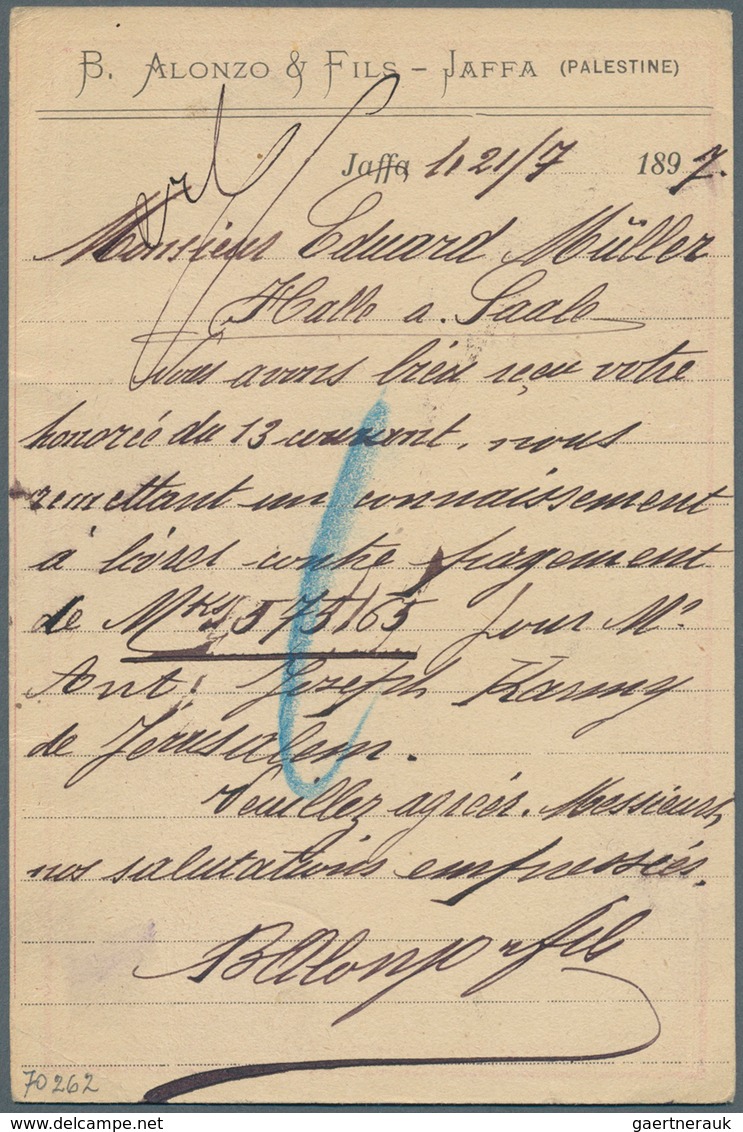 B. ALONZO & FILS – JAFFA (PALESTINE)
Jaffa, le 21/7 1897.
Monsieur Eduard Müller
Halle a. Saale
Nous avons bien reçu votre
honorée du 13 courant, nous
remettant un connaissement
à livrer contre payement
de Mks 575,65 pour Mr
Ant. Joseph Karmy
de Jérusalem.
Veuillez agréer, Messieurs,
nos salutations empressées.
B Alonzo & fils
70262
gaertnerauk